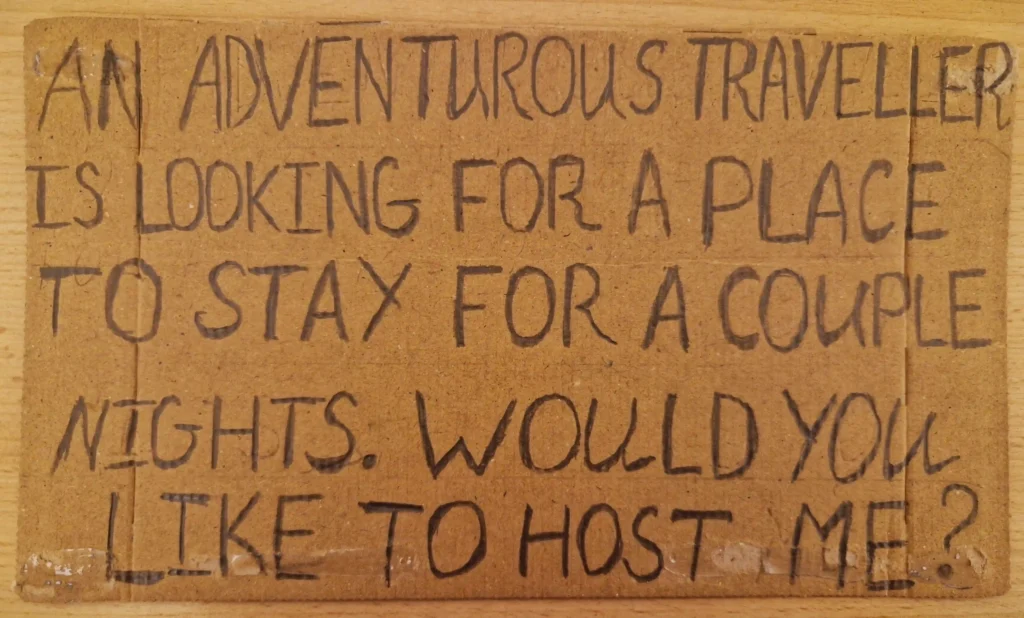 AN ADVENTUROUS TRAVELLER
IS LOOKING FOR A PLACE
TO STAY FOR A COUPLE
NIGHTS. WOULD YOU
LIKE TO HOST ME?